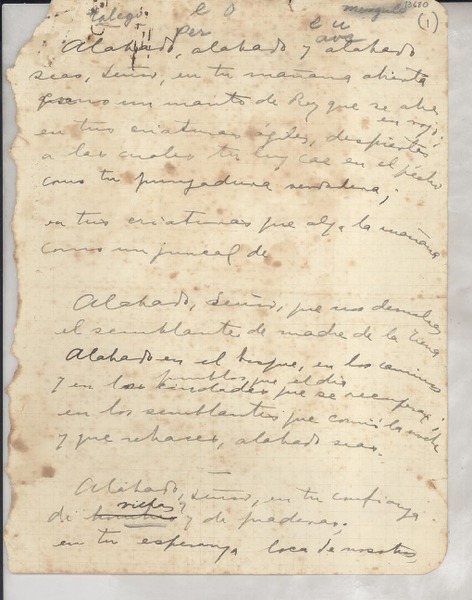 (1)
Alabado, alabado y alabado
seas, Señor, en tu mañana abierta
como un manto de Rey que se abre
en rojo;
en tus criaturas ágiles, despiertas
a las cuales tu luz cae en el pecho
como tu punzadura verdadera;
en tus criaturas que alza la mañana
como un juncal de
Alabado, Señor, que nos devuelves
el semblante de madre de la tierra
Alabado en el bosque, en los caminos
pueblos que el día
y en las bondades que se
en los semblantes que comió la noche
y que rehaces, alabado seas.
Alabado, Señor, en tu confianza
viñas
de hombres y de praderas,
en tu esperanza loca de nosotros,